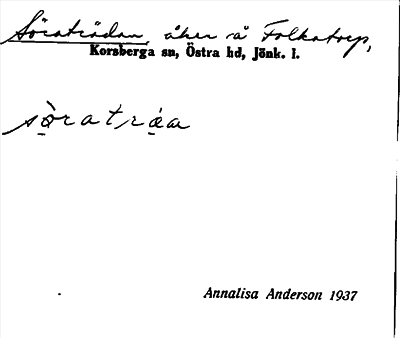 Söraträdan, åker å Folkatorp,
Korsberga sn, Östra hd, Jönk. l.
sò̱ratrá̱a
Annalisa Anderson 1937